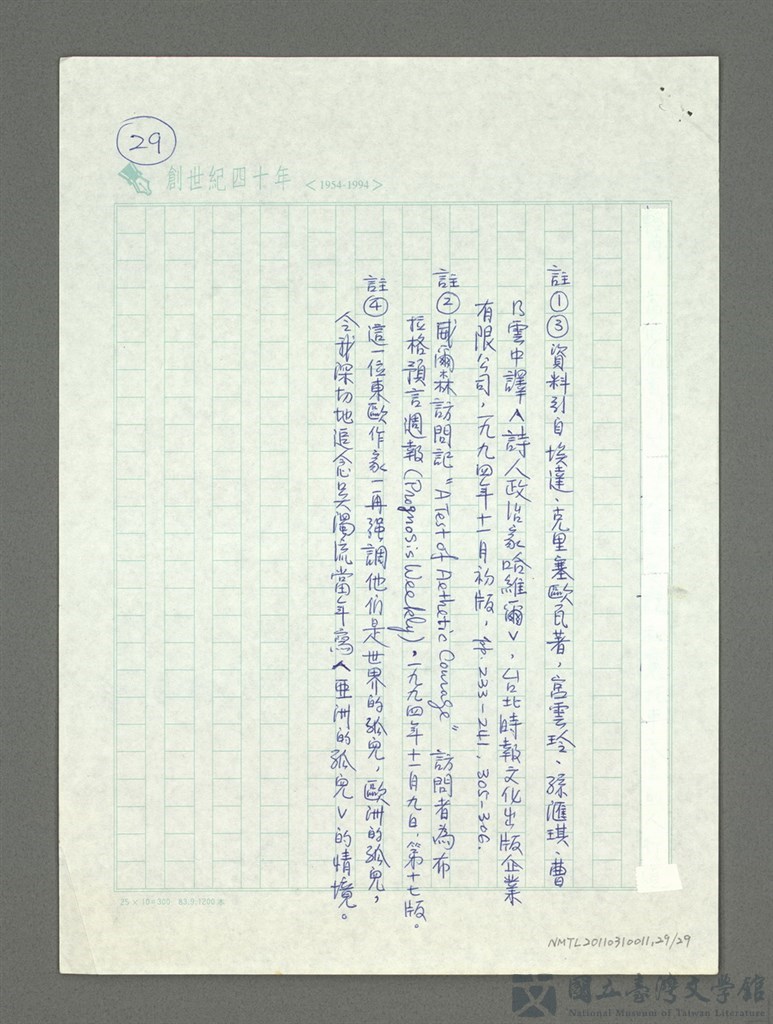 29
創世紀四十年 <1954-1994>
註①③資料引自埃達、克里塞歐瓦著,宮雲玲、孫滙琪、曹
乃雲中譯<詩人政治家哈維爾>,台北時報文化出版企業
有限公司,一九九四年十一月初版,pp.233-241,305-306.
註②威爾林訪問記"A Test of Aethetic Courage"訪問者為布
拉格預言週報(Prognosis Weekly),一九九四年十一月九日,第十七版。
註④這一位東歐作家一再強調他们是世界的孤兒,歐洲的孤兒,
令我深切地追念吳濁流當年寫<亞洲的孤兒>的情境。
25×10=300 83.9.1200本
NMTL20110310011,29/29
國立臺灣文學館
National Museum of Taiwan Literature